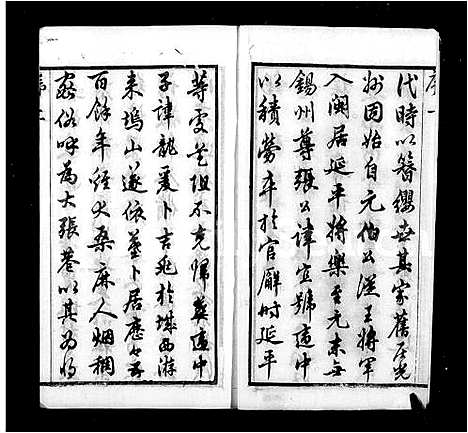 序一
代時以簪纓世其家舊居光
州固始自元伯公從王將軍
入閩居延平將樂至元末世
錫州尊張公諱宣號適中
以積勞卒於官廨時延平
等處芝阻不克歸葬適中
子諱龍爰卜吉兆於城西游
來塢山遂依墓卜居歷今五
百餘年經火桑麻人烟稠
密俗呼為大張巷以其為